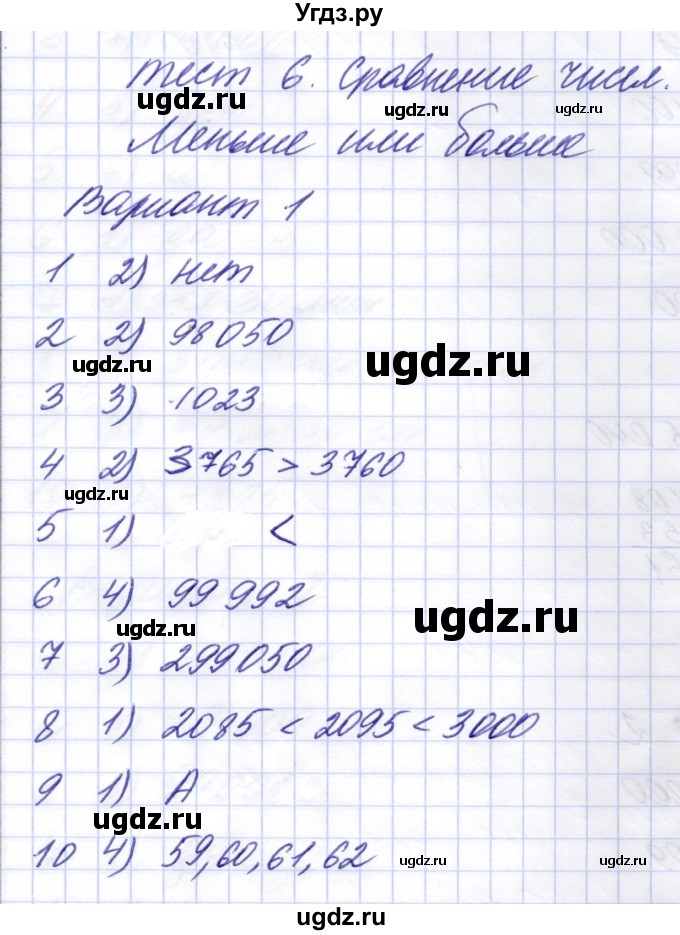 Угдз.ру
Тест 6. Сравнение чисел.
ugdz.ru ugdz.ru ugdz.ru
Меньше или больше
Вариант 1
1 2) нет
2 2) 98050
ugdz.ru ugdz.ru
3 3) 1023
4 2) 3765 > 3760
ugdz.ru
5 1) <
6 4) 99992
ugdz.ru ugdz.ru
7 3) 299050
8 1) 2085 < 2095 < 3000
9 1) А
ugdz.ru
10 4) 59, 60, 61, 62
ugdz.ru ugdz.ru
ugdz.ru